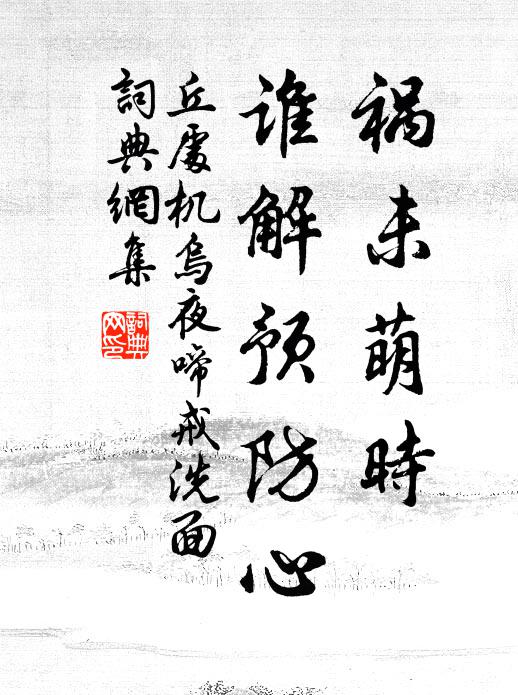 祸未萌時
谁解预防心
丘處机烏夜啼戒洗面
詞典網集
詞典網印